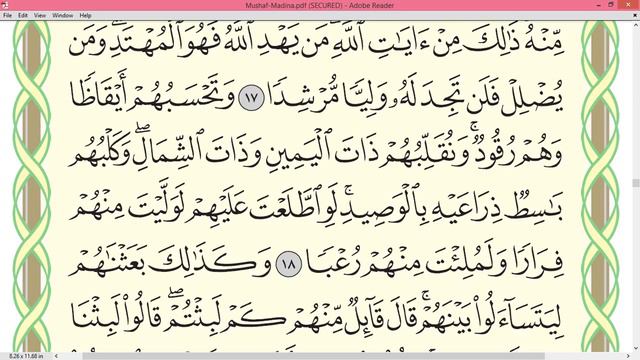 Mushaf-Madina.pdf (SECURED) - Adobe Reader
File Edit View Window Help
مِّنْهُ ذَٰلِكَ مِنْ ءَايَٰتِ ٱللَّهِ مَن يَهْدِ ٱللَّهُ فَهُوَ ٱلْمُهْتَدِ وَمَن
يُضْلِلْ فَلَن تَجِدَ لَهُۥ وَلِيًّا مُّرْشِدًا ١٧ وَتَحْسَبُهُمْ أَيْقَاظًا
وَهُمْ رُقُودٌ ۚ وَنُقَلِّبُهُمْ ذَاتَ ٱلْيَمِينِ وَذَاتَ ٱلشِّمَالِ ۖ وَكَلْبُهُم
بَٰسِطٌ ذِرَاعَيْهِ بِٱلْوَصِيدِ ۚ لَوِ ٱطَّلَعْتَ عَلَيْهِمْ لَوَلَّيْتَ مِنْهُمْ
فِرَارًا وَلَمُلِئْتَ مِنْهُمْ رُعْبًا ١٨ وَكَذَٰلِكَ بَعَثْنَٰهُمْ
لِيَتَسَآءَلُوا۟ بَيْنَهُمْ ۚ قَالَ قَآئِلٌ مِّنْهُمْ كَمْ لَبِثْتُمْ ۖ قَالُوا۟ لَبِثْنَا
8.26 x 11.68 in